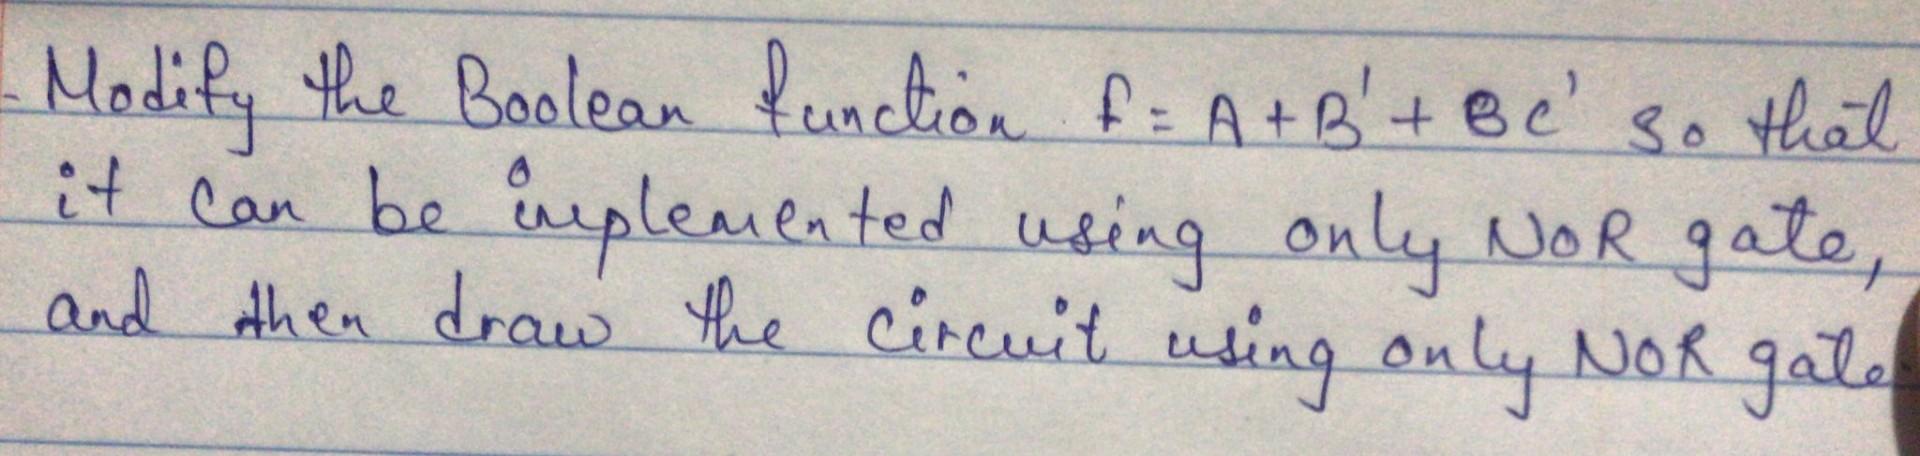 - Modify the Boolean function f = A + B' + BC' so that
it can be implemented using only NOR gate,
and then draw the circuit using only NOR gate